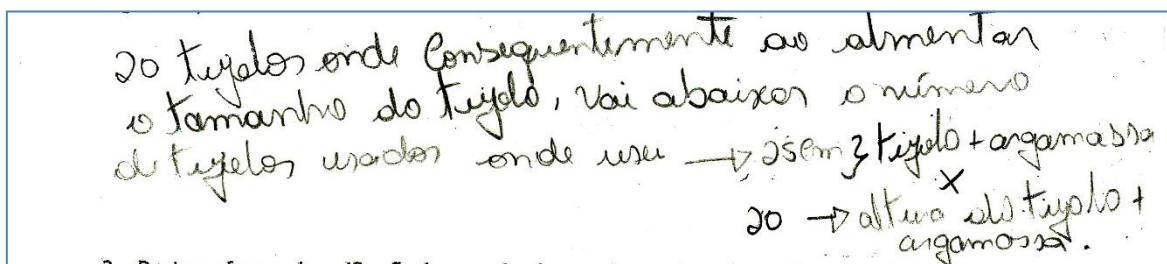 20 tijolos onde Consequentemente ao almentar
o tamanho do tijolo, vai abaixar o número
de tijolos usados onde usei → 25cm } tijolo + argamassa
x
20 → altura do tijolo +
argamassa.